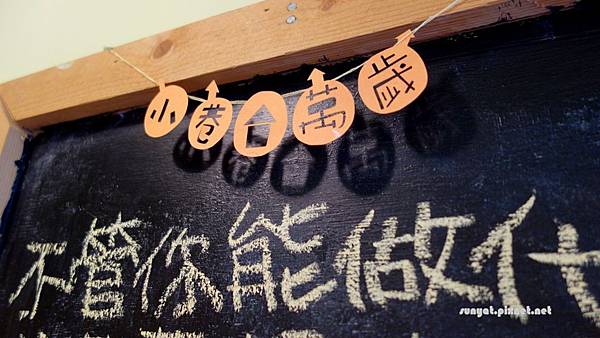 小卷 萬歲
不管你能做什
sunyat.pixnet.net